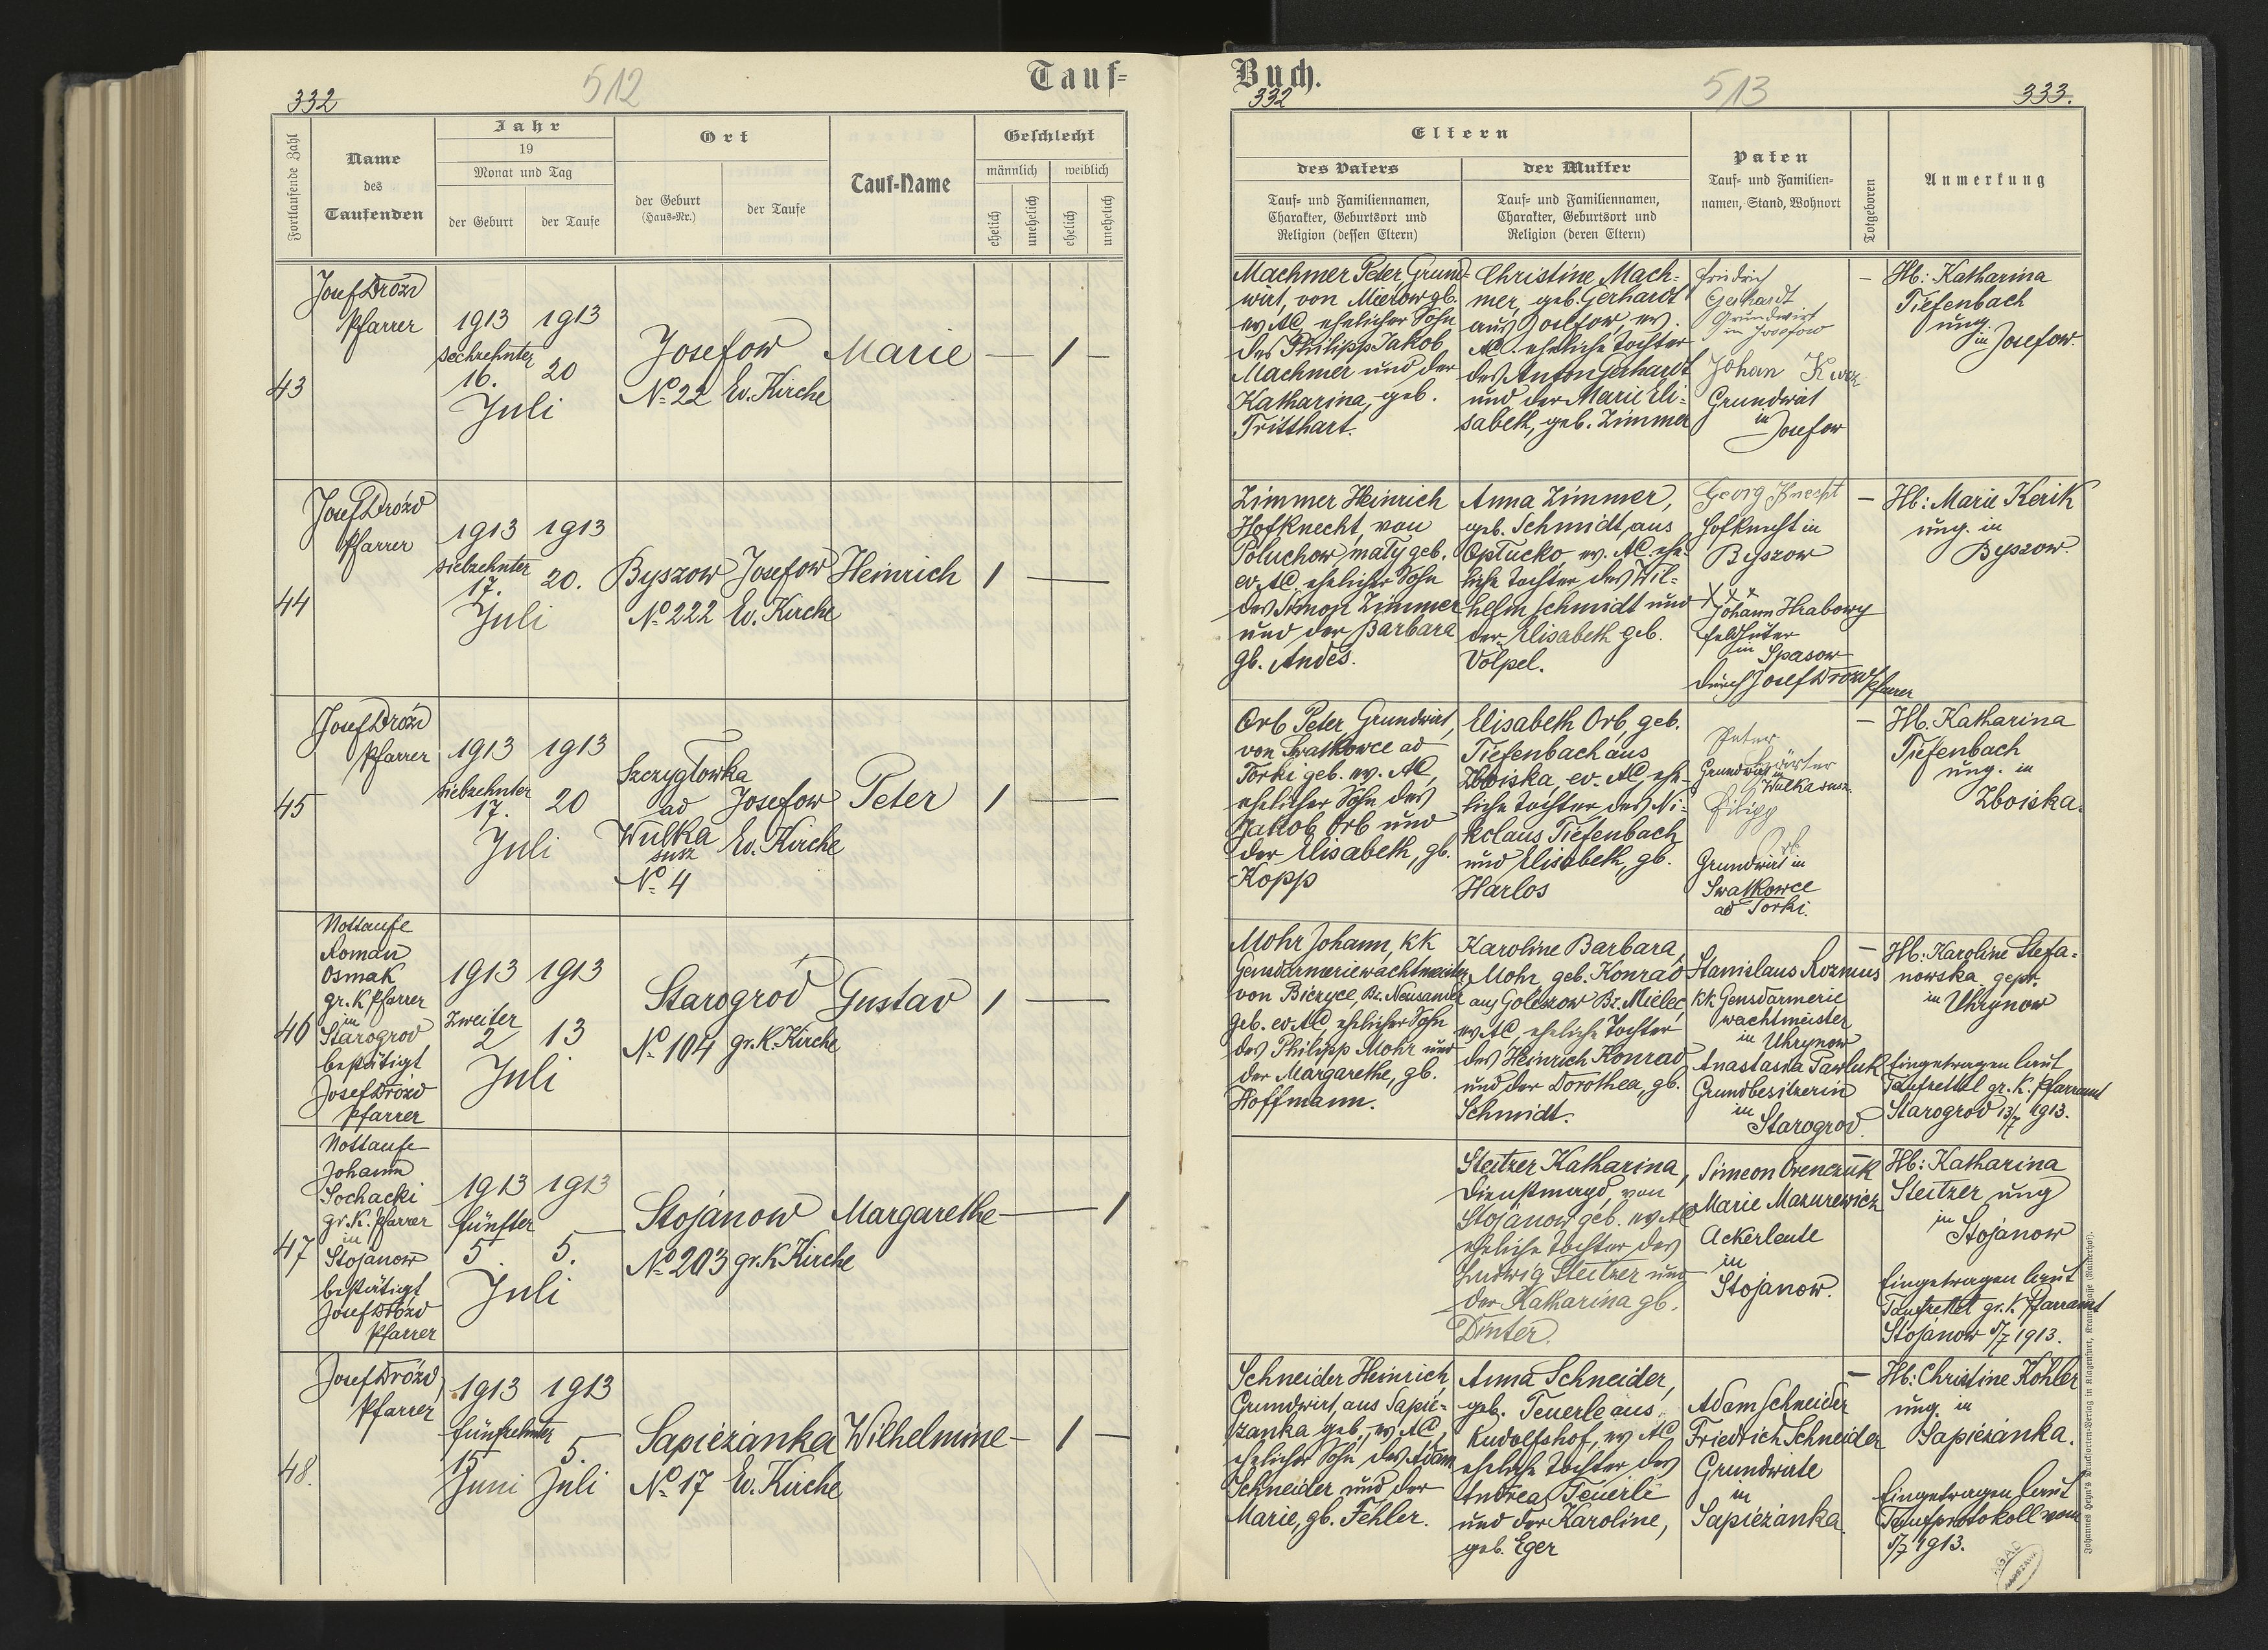 Tauf=
512
332
Fortlaufende Zahl
Name
des
Taufenden
Jahr
19
Monat und Tag
der Geburt
der Taufe
Ort
der Geburt
(Haus-Nr.)
der Taufe
Tauf-Name
Geschlecht
männlich
weiblich
ehelich
unehelich
ehelich
unehelich
43
Josef Drózd
Pfarrer
1913 1913
sechzehnter
16. 20
Juli
Josefow
No 22 Ev. Kirche
Marie
— 1 —
44
Josef Drózd
Pfarrer
1913 1913
siebzehnter
17. 20.
Juli
Byszow Josefow
No 222 Ev. Kirche
Heinrich
1 —
45
Josef Drózd
Pfarrer
1913 1913
siebzehnter
17. 20
Juli
Szczygłowka
ad Josefow
Wulka Ev. Kirche
susz
No 4
Peter
1 —
46
Nottaufe
Roman
Osmak
gr. K Pfarrer
in
Starogrod
bestätigt
Josef Drózd
Pfarrer
1913 1913
Zweiter
2 13
Juli
Starogrod
No 104 gr. K. Kirche
Gustav
1 —
47
Nottaufe
Johann
Sochacki
gr. K. Pfarrer
in
Stojanow
bestätigt
Josef Drózd
Pfarrer
1913 1913
fünfter
5. 5.
Juli
Stojanow
No 203 gr. K Kirche
Margarethe
— 1
48.
Josef Drózd,
Pfarrer
1913 1913
fünfzehnter
15 5.
Juni Juli
Sapieżanka
No 17 Ev. Kirche
Wilhelmine
— 1 —
Buch.
332
513
333.
Eltern
des Vaters
Tauf- und Familiennamen,
Charakter, Geburtsort und
Religion (dessen Eltern)
der Mutter
Tauf- und Familiennamen,
Charakter, Geburtsort und
Religion (deren Eltern)
Paten
Tauf- und Familien-
namen, Stand, Wohnort
Totgeboren
Anmerkung
Machmer Peter, Grund-
wirt, von Mierow gb.
ev AC, ehelicher Sohn
des Philipp Jakob
Machmer und der
Katharina, geb.
Tritthart.
Christine Mach-
mer, geb. Gerhardt
aus Josefow, ev.
AC. eheliche Tochter
des Anton Gerhardt
und der Marie Eli-
sabeth, geb. Zimmer
Friedrich
Gerhardt
Grundwirt
in Josefow
Johan
Grundwirt
in
Josefow
—
Hb: Katharina
Tiefenbach
ung.
in Josefow.
Zimmer Heinrich
Hofknecht, von
Poluchow mały geb.
ev. AC, ehelicher Sohn
des Simon Zimmer
und der Barbara
gb. Andes.
Anna Zimmer,
geb. Schmidt, aus
Opłucko ev. AC. ehe-
liche Tochter des Wil-
helm Schmidt und
der Elisabeth geb.
Völpel.
Georg Knecht
Hofknecht in
Byszow
X X X
Johann Hrabowy
Feldhüter
in Spasow
durch Josef Drózd Pfarrer
—
Hb: Marie Kerik
ung. in
Byszow.
Orb Peter, Grundwirt,
von Swatkowce ad
Torki geb. ev. AC,
ehelicher Sohn des
Jakob Orb und
der Elisabeth, gb.
Kopp
Elisabeth Orb geb.
Tiefenbach aus
Zboiska ev. AC, ehe-
liche Tochter des Ni-
kolaus Tiefenbach
und Elisabeth, gb.
Harlos
Peter
Grundwirt in
Wulka susz.
Filipp
Orb
Grundwirt in
Swatkowce
ad Torki.
—
Hb. Katharina
Tiefenbach
ung. in
Zboiska.
Mohr Johann, kk
Gensdarmeriewachtmeister
von Biczyce, Bz. Neusandez
geb. ev AC, ehelicher Sohn
des Philipp Mohr und
der Margarethe, gb.
Hoffmann.
Karoline Barbara,
Mohr, geb. Konrad
aus Goleszow Bz. Mielec,
ev. AC, eheliche Tochter
des Heinrich Konrad
und der Dorothea, gb.
Schmidt.
Stanislaus Rozmus
kk Gensdarmerie
wachtmeister
in Uhrynow
Anastasia Pawluk
Grundbesitzerin
in
Starogrod.
—
Hb: Karoline Stefa-
nowska gepr.
in Uhrynow
Eingetragen laut
Taufzettel gr. K. Pfarramt
Starogrod 13/7 1913.
Steitzer Katharina,
Dienstmagd, von
Stojanow geb. ev AC
eheliche Tochter des
Ludwig Steitzer und
der Katharina gb.
Dinter.
Simeon Orenczuk
Marie Mazurewicz
Ackerleute
in
Stojanow.
Hb: Katharina
Steitzer ung
in
Stojanow
Eingetragen laut
Taufzettel gr. K. Pfarramt
Stojanow 5/7 1913.
Schneider Heinrich,
Grundwirt, aus Sapie-
żanka geb., ev AC,
ehelicher Sohn des Adam
Schneider und der
Marie, gb. Fehler.
Anna Schneider,
geb. Teuerle aus
Rudolfshof, ev AC
eheliche Tochter des
Andreas Teuerle
und der Karoline,
geb. Eger
Adam Schneider
Friedrich Schneider
Grundwirte
in
Sapieżanka
—
Hb: Christine Köhler
ung. in
Sapieżanka.
Eingetragen laut
Taufprotokoll vom
5/7 1913.
Johannes Heyn's Drucksorten-Verlag in Klagenfurt, Kramergasse (Rainerhof).
AGAD
WARSZAWA